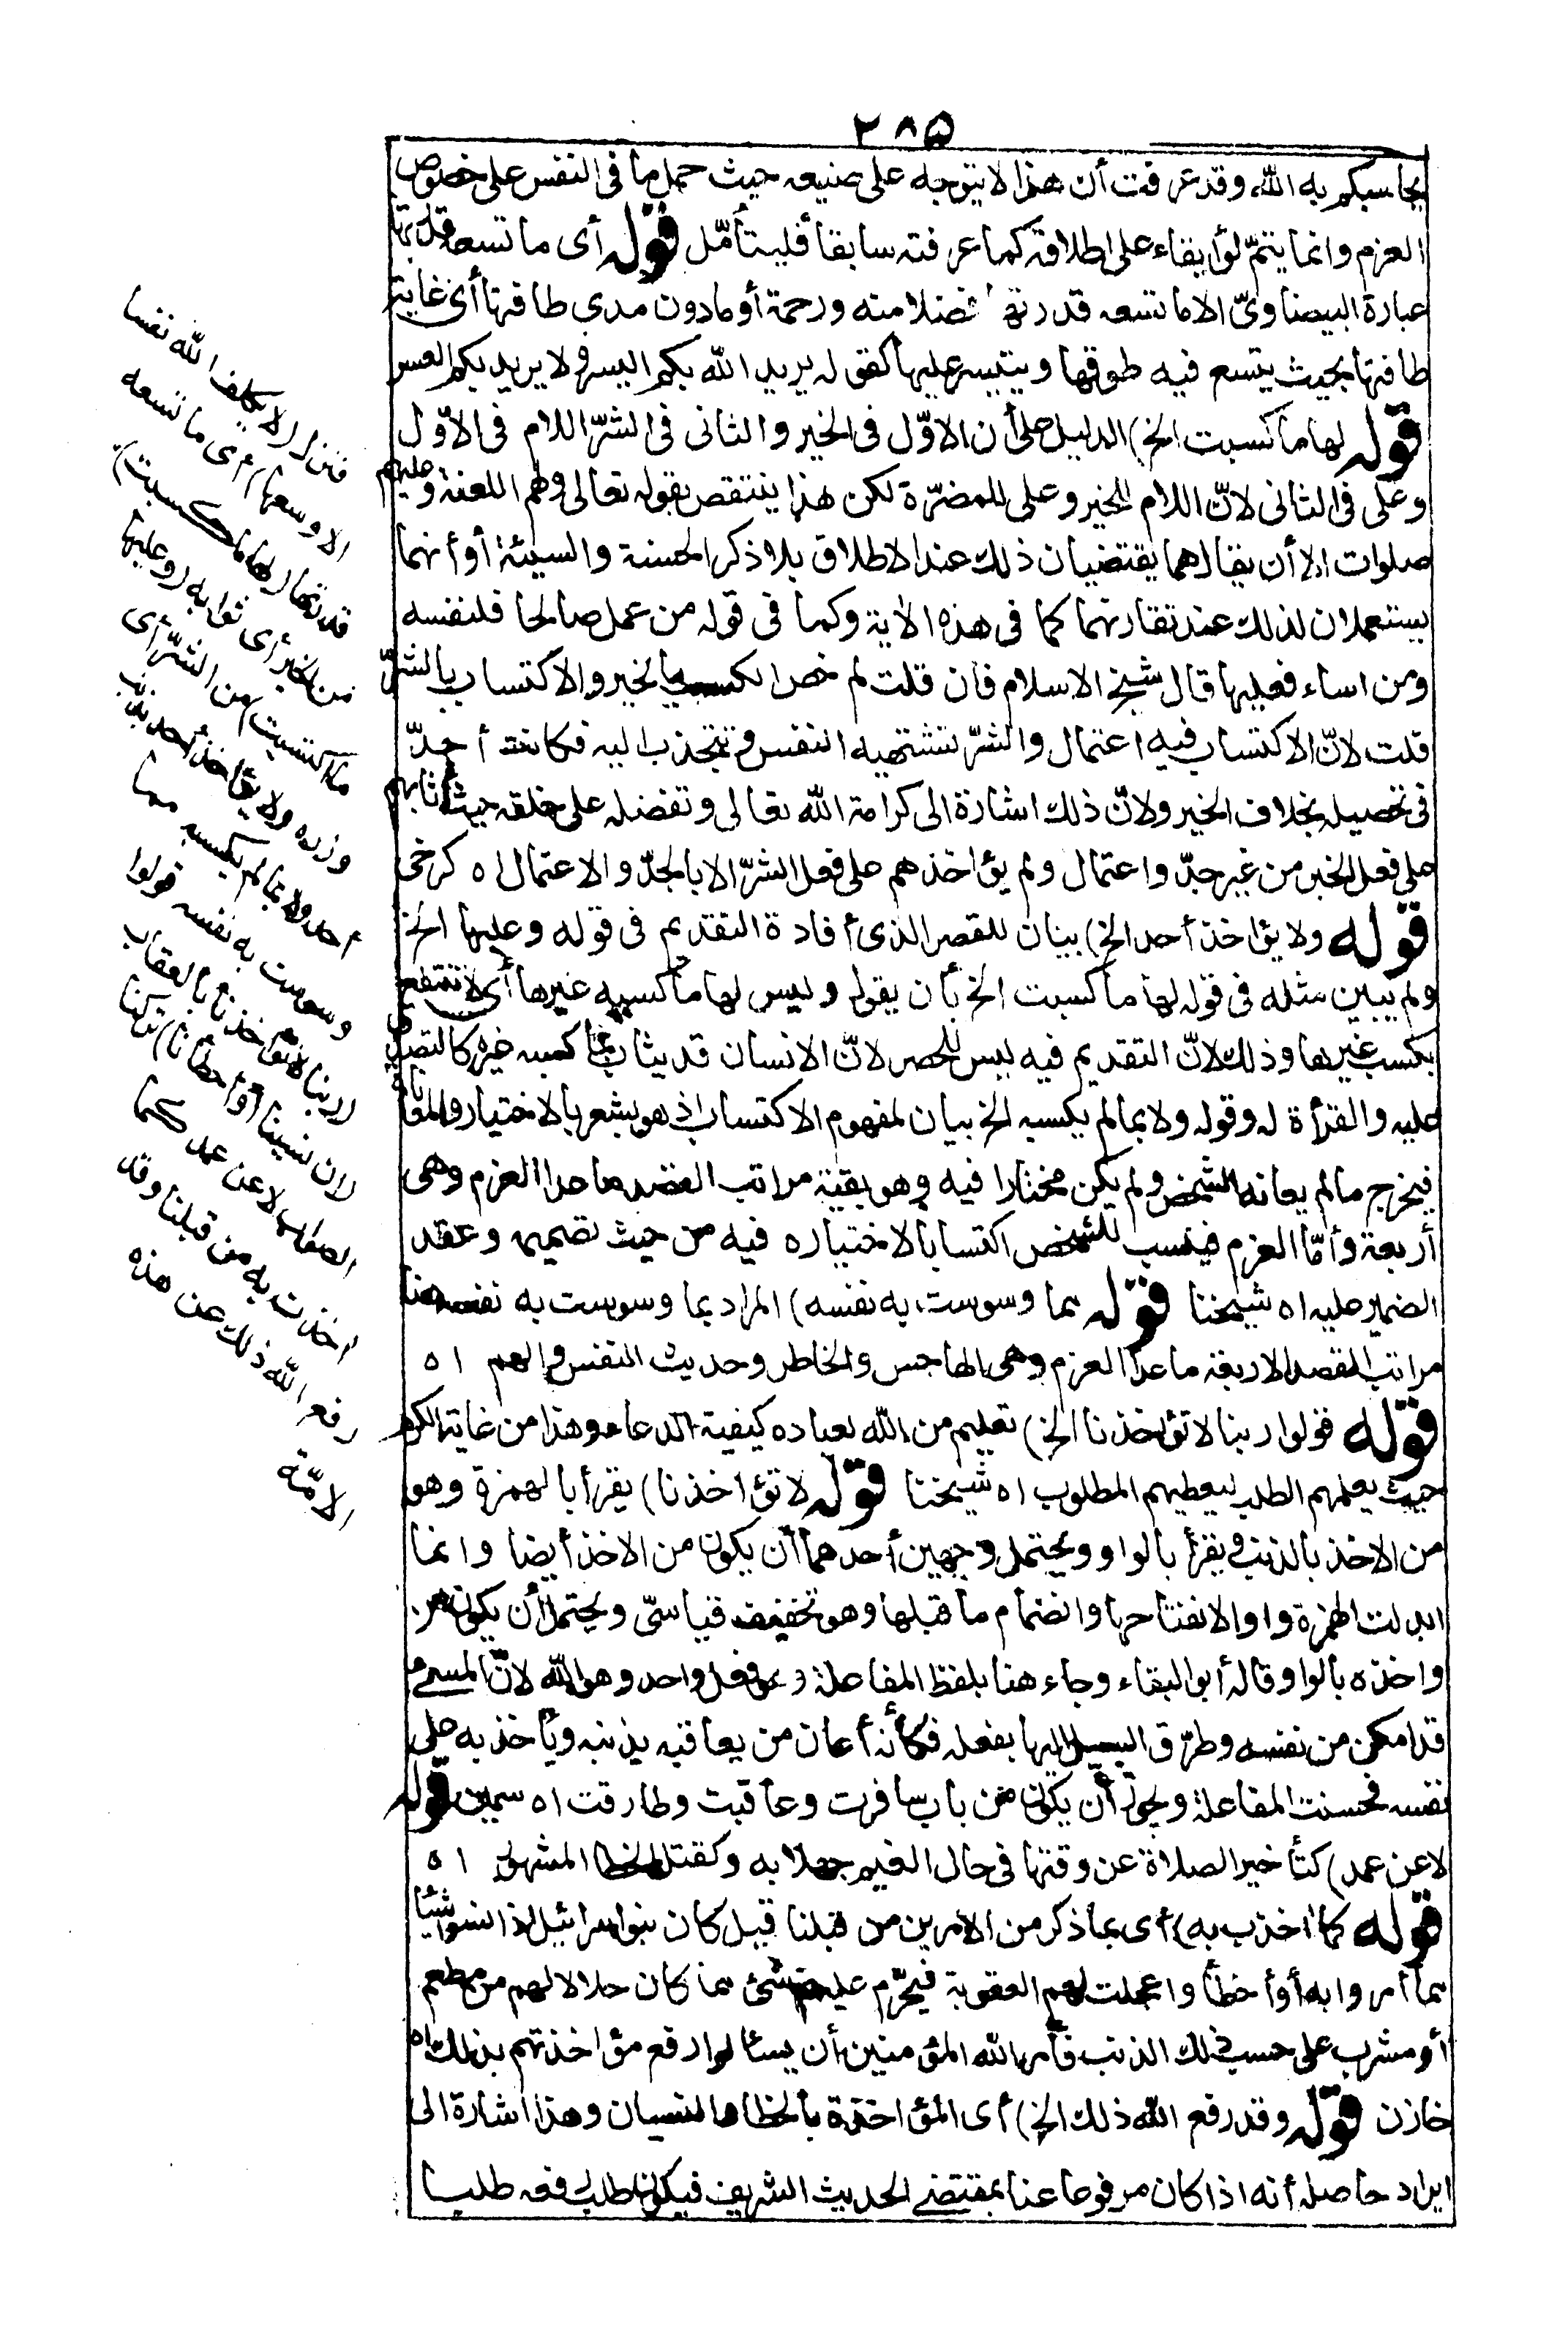 ٢٨٥
يحاسبكم به الله وقد عرفت أن هذا لا يتوجه على صنيعه حيث حمل ما فى النفس على خصوص
العزم وانما يتمّ لو أبقاء على اطلاقه كما عرفته سابقا فليتأمّل قوله أى ما تسعه قدرتها
عبارة البيضاوىّ الا ما تسعه قدرتها فضلا منه ورحمة أو مادون مدى طاقتها أى غاية
طاقتها بحيث يتسع فيه طوقها ويتيسر عليها كقوله يريد الله بكم اليسر ولا يريد بكم العسر
قوله لها ما كسبت الخ) الدليل على أن الاوّل فى الخير والثانى فى الشرّ اللام فى الاوّل
وعلى فى الثانى لانّ اللام للخير وعلى للمضرّة لكن هذا ينتقص بقوله تعالى ولهم اللعنة وعليهم
صلوات الا أن يقال هما يقتضيان ذلك عند الاطلاق بلا ذكر الحسنة والسيئة أو أنهما
يستعملان لذلك عند تقارنهما كما فى هذه الاية وكما فى قوله من عمل صالحا فلنفسه
ومن اساء فعليها قال شيخ الاسلام فان قلت لم خص الكسب بالخير والاكتساب بالشرّ
قلت لانّ الاكتساب فيه اعتمال والشرّ تشتهيه النفس وتنجذب اليه فكانت أجدّ
فى تحصيله بخلاف الخير ولانّ ذلك اشارة الى كرامة الله تعالى وتفضله على خلقه حيث أثابهم
على فعل الخير من غير جدّ واعتمال ولم يؤاخذهم على فعل الشرّ الا بالجدّ والاعتمال اه كرخى
قوله ولا يؤاخذ أحد الخ) بيان للقصر الذى أفادة التقديم فى قوله وعليها الخ
ولم يبين مثله فى قوله لها ما كسبت الخ بأن يقول وليس لها ما كسبه غيرها أى لا تنتفع
بكسب غيرها وذلك لانّ التقديم فيه ليس للحصر لانّ الانسان قد يثاب بما كسبه غيره كالتصدق
عليه والقرأة له وقوله ولا بما لم يكسبه الخ بيان لمفهوم الاكتساب اذ هو يشعر بالاختيار والمعاناة
فيخرج ما لم يعانه الشخص ولم يكن مختارا فيه وهو بقية مراتب القصد ما عدا العزم وهى
أربعة وأمّا العزم فينسب للشخص اكتسابا لاختياره فيه من حيث تصميمه وعقد
الضمير عليه اه شيخنا قوله بما وسوست به نفسه) المراد بما وسوست به نفسه هنا
مراتب القصد الاربعة ماعدا العزم وهى الهاجس والخاطر وحديث النفس والهم اه
قوله قولوا ربنا لا تؤاخذنا الخ) تعليم من الله لعباده كيفية الدعاء وهذا من غاية الكرم
حيث يعلمهم الطلب ليعطيهم المطلوب اه شيخنا قوله لا تؤاخذنا) يقرأ بالهمزة وهو
من الاخذ بالذنب ويقرأ بالواو ويحتمل وجهين أحدهما أن يكون من الاخذ أيضا وانما
ابدلت الهمزة واوا لانفتاحها وانضمام ما قبلها وهو تخفيف قياسىّ ويحتمل أن يكون من
واخذه بالواو قاله أبو البقاء وجاء هنا بلفظ المفاعلة وهو فعل واحد وهو الله لانّ المسىء
قد امكن من نفسه وطرّق السبيل اليها بفعله فكأنه أعان من يعاقبه بذنبه ويأخذ به على
نفسه فحسنت المفاعلة ويجوز أن يكون من باب سافرت وعاقبت وطارقت اه سمين قوله
لا عن عمد) كتأخير الصلاة عن وقتها فى حال الغيم جهلا به وكقتل الخطا المشهور اه
قوله كما أخذت به) أى بما ذكر من الامرين من قبلنا قيل كان بنو اسرائيل اذا نسوا شيئا
مما أمروا به أو أخطأوا عجلت لهم العقوبة فيحرّم عليهم شئ مما كان حلالا لهم من مطعم
أو مشرب على حسب ذلك الذنب فأمر الله المؤمنين أن يسئالوا رفع مؤاخذتهم بذلك اه
خازن قوله وقد رفع الله ذلك الخ) أى المؤاخذة بالخطا والنسيان وهذا اشارة الى
ايراد حاصله أنه اذا كان مرفوعا عنا بمقتضى الحديث الشريف فيكون طلب رفعه طلبا
فنزل (لا يكلف الله نفسا
الا وسعها) أى ما تسعه
قدرتها (لها ما كسبت)
من الخير أى ثوابه (وعليها
ما اكتسبت) من الشرّ أى
وزره ولا يؤاخذ أحد بذنب
أحد ولا بما لم يكسبه مما
وسوست به نفسه قولوا
(ربنا لا تؤاخذنا) بالعقاب
(ان نسينا أو أخطأنا) تركنا
الصواب لا عن عمد كما
اخذت به من قبلنا وقد
رفع الله ذلك عن هذه
الامّة